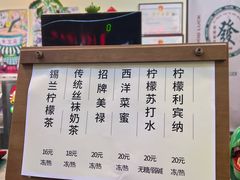 發
0
柠檬利宾纳
20元
冻/热
柠檬苏打水
20元
无糖/弱碱
西洋菜蜜
20元
冻/热
招牌美禄
20元
冻/热
传统丝袜奶茶
18元
冻/热
锡兰柠檬茶
16元
冻/热